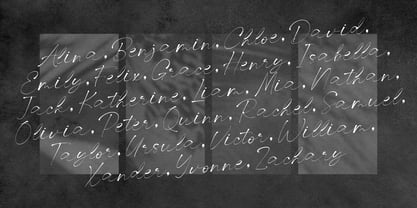 Alina. Benjamin. Chloe. David.
Emily. Felix. Grace. Henry. Isabella.
Jack. Katherine. Liam. Mia. Nathan.
Olivia. Peter. Quinn. Rachel. Samuel.
Taylor. Ursula. Victor. William.
Xander. Yvonne. Zachary